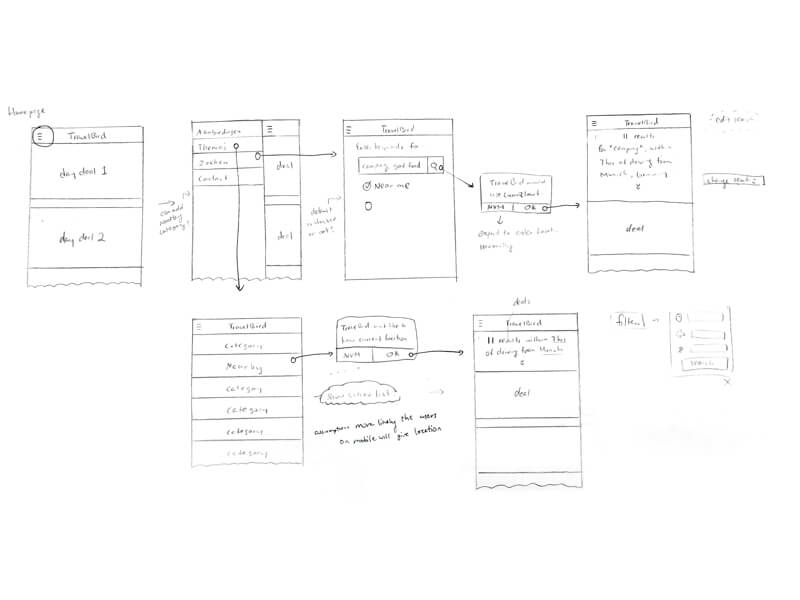 Homepage
TravelBird
day deal 1
day deal 2
can add
nearby
category?
Aanbiedingen
Thema's
Zoeken
Contact
deal
deal
default
is checked
or not?
TravelBird
Enter keywords for
camping good food
Near me
TravelBird would
use current
NVM | OK
expand to enter
manually
TravelBird
11 results
for "camping", within
7hrs of driving from
Munich, Germany
deal
edit search
change search
TravelBird
category
Nearby
category
category
category
category
TravelBird would like to
know current location
NVM | OK
show screen list
assumption: more likely the users
on mobile will give location
deals
TravelBird
11 results within 7hrs
of driving from Munich
deal
filter
search
X